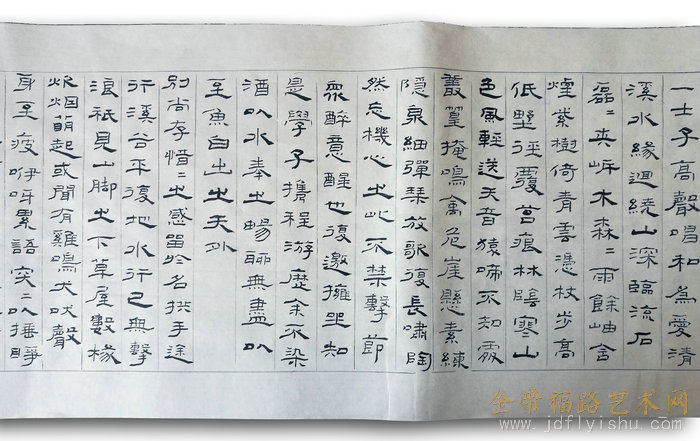 一士子高聲唱和為愛清
溪水緣迴繞山深臨流石
磊二夾岍木森二雨餘岫含
煙紫樹倚青雲憑杖步高
低野徑覆莒痕林陰寒山
色風輕送天音猿啼不知
叢篁掩鳴禽危崖懸素練
隱泉細彈琴放歌復長嘯陶
然忘機心之此不禁擊節
眾醉意醒也復邀擁坐知
是學子攜程游歷余不染
酒以水奉之暢聊無盡以
至魚白之出天外
別尚存惜二之感留於名拱手途
行溪谷平復地水行已無擊
浪祇見山脚之下草屋數椽
炊烟萌起或聞有雞鳴犬吠聲
身至疲咿呀累語突二以捶睜
金带福路艺术网
www.jdflyishu.com